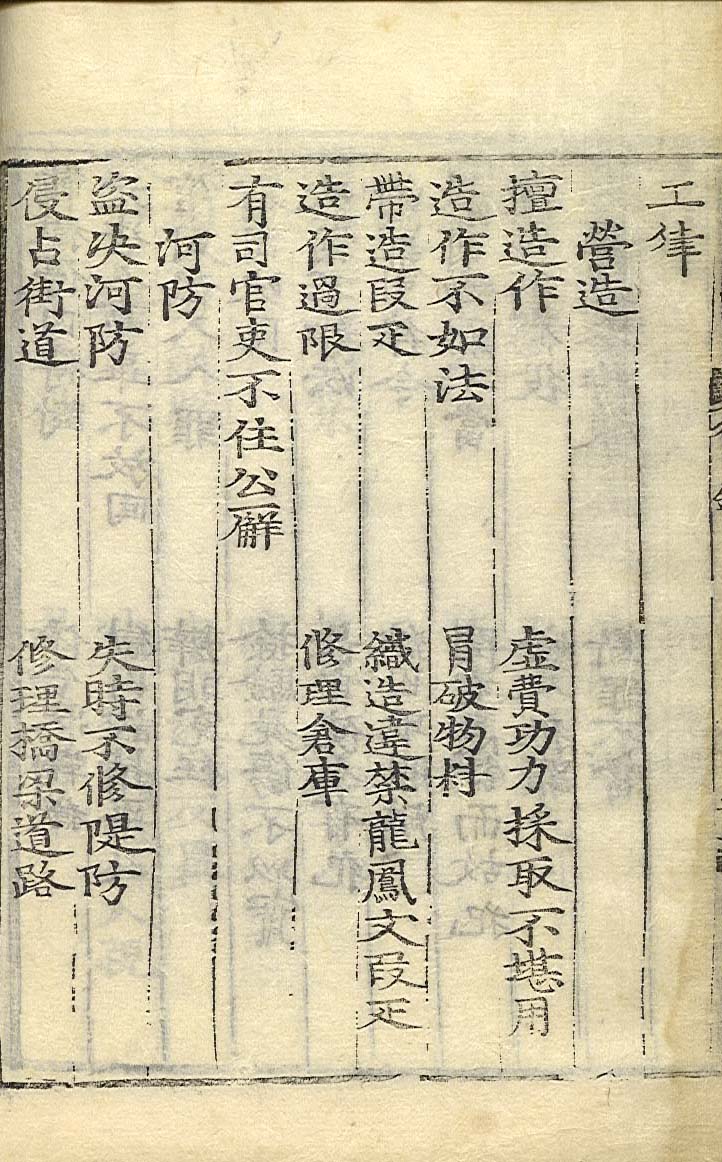 工律
營造
擅造作　虛費功力採取不堪用
造作不如法　冒破物料
帶造段疋　織造違禁龍鳳文段疋
造作過限　修理倉庫
有司官吏不住公廨
河防
盜决河防　失時不修隄防
侵占街道　修理橋梁道路